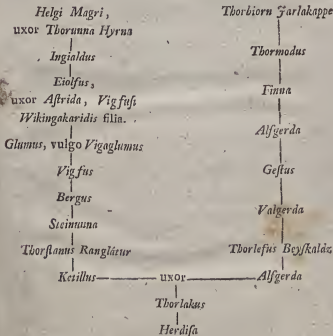 Helgi Magri,
uxor Thorunna Hyrna
Ingialdus
Eiolfus,
uxor Aſtrida, Vigfuſi
Wikingakaridis filia.
Glumus, vulgo Vigaglumus
Vigfus
Bergus
Steinunna
Thorſtanus Ranglátur
Ketillus
Thorbiorn Jarlakappe
Thormodus
Finna
Alfgerda
Geſtus
Valgerda
Thorlefus Beyſkaldz
Alfgerda
uxor
Thorlakus
Herdiſa